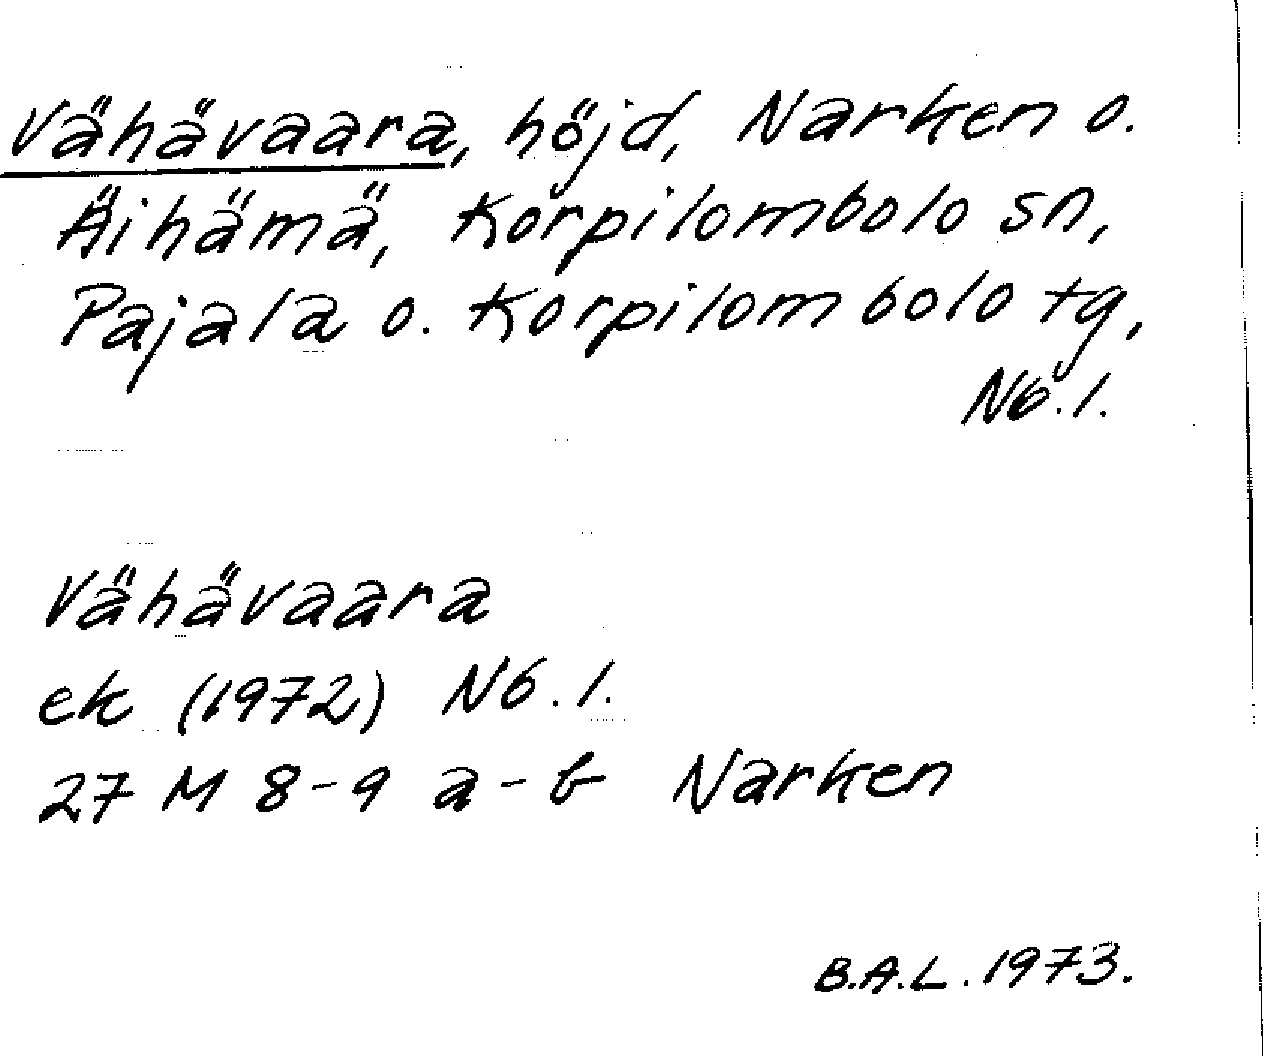 Vähävaara, höjd, Narken o.
Äihämä, Korpilombolo sn,
Pajala o. Korpilombolo tg,
Nb. l.
Vähävaara
ek (1972) Nb. l.
27 M 8-9 a-b Narken
B.A.L. 1973.